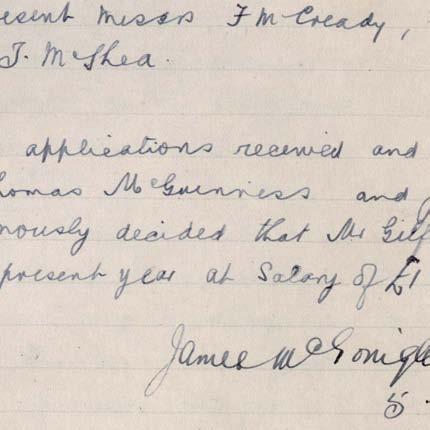 esent Messrs F McCready,
J. McShea.
applications received and
homas McGuinness and
nously decided that Mr Gilf
present year at Salary of £1
James McGonigle
5